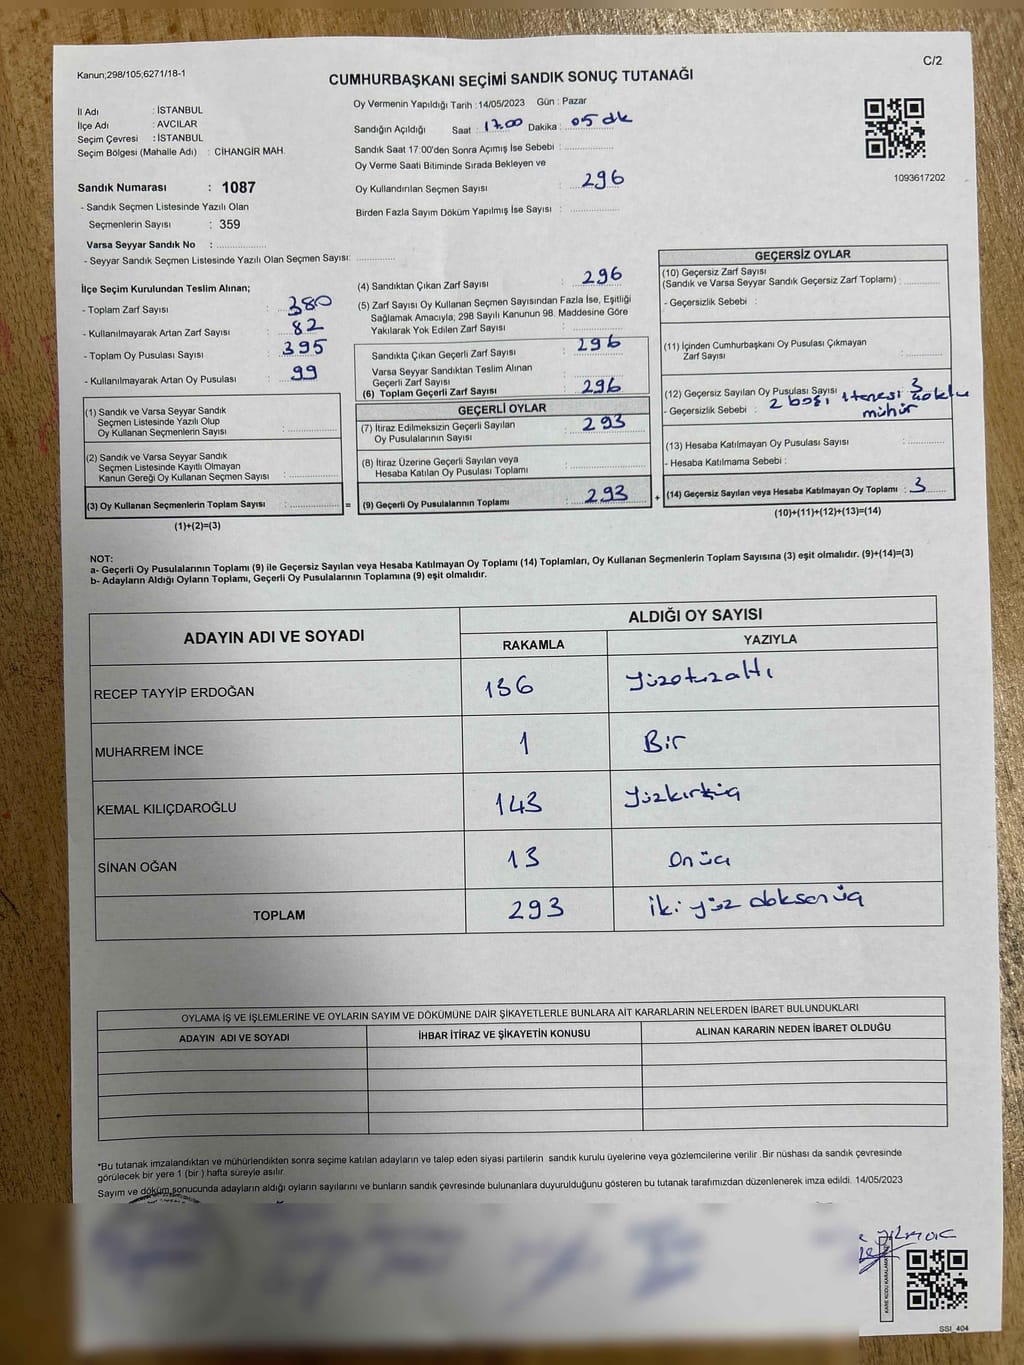 Kanun;298/105,6271/18-1
C/2
CUMHURBAŞKANI SEÇİMİ SANDIK SONUÇ TUTANAĞI
İl Adı : İSTANBUL
İlçe Adı : AVCILAR
Seçim Çevresi : İSTANBUL
Seçim Bölgesi (Mahalle Adı) : CİHANGİR MAH.
Sandık Numarası : 1087
- Sandık Seçmen Listesinde Yazılı Olan
Seçmenlerin Sayısı : 359
Varsa Seyyar Sandık No :
- Seyyar Sandık Seçmen Listesinde Yazılı Olan Seçmen Sayısı:
Oy Vermenin Yapıldığı Tarih : 14/05/2023 Gün : Pazar
Sandığın Açıldığı Saat : 17.00 Dakika : 05 dk
Sandık Saat 17:00'den Sonra Açımış İse Sebebi :
Oy Verme Saati Bitiminde Sırada Bekleyen ve
Oy Kullandırılan Seçmen Sayısı : 296
Birden Fazla Sayım Döküm Yapılmış İse Sayısı :
1093617202
İlçe Seçim Kurulundan Teslim Alınan;
- Toplam Zarf Sayısı : 380
- Kullanılmayarak Artan Zarf Sayısı : 82
- Toplam Oy Pusulası Sayısı : 395
- Kullanılmayarak Artan Oy Pusulası : 99
(1) Sandık ve Varsa Seyyar Sandık
Seçmen Listesinde Yazılı Olup
Oy Kullanan Seçmenlerin Sayısı :
(2) Sandık ve Varsa Seyyar Sandık
Seçmen Listesinde Kayıtlı Olmayan
Kanun Gereği Oy Kullanan Seçmen Sayısı :
(3) Oy Kullanan Seçmenlerin Toplam Sayısı : =
(1)+(2)=(3)
(4) Sandıktan Çıkan Zarf Sayısı : 296
(5) Zarf Sayısı Oy Kullanan Seçmen Sayısından Fazla İse, Eşitliği
Sağlamak Amacıyla; 298 Sayılı Kanunun 98. Maddesine Göre
Yakılarak Yok Edilen Zarf Sayısı :
Sandıkta Çıkan Geçerli Zarf Sayısı : 296
Varsa Seyyar Sandıktan Teslim Alınan
Geçerli Zarf Sayısı :
(6) Toplam Geçerli Zarf Sayısı : 296
GEÇERLİ OYLAR
(7) İtiraz Edilmeksizin Geçerli Sayılan
Oy Pusulalarının Sayısı : 293
(8) İtiraz Üzerine Geçerli Sayılan veya
Hesaba Katılan Oy Pusulası Toplamı :
(9) Geçerli Oy Pusulalarının Toplamı : 293 +
GEÇERSİZ OYLAR
(10) Geçersiz Zarf Sayısı
(Sandık ve Varsa Seyyar Sandık Geçersiz Zarf Toplamı) :
- Geçersizlik Sebebi :
(11) İçinden Cumhurbaşkanı Oy Pusulası Çıkmayan
Zarf Sayısı :
(12) Geçersiz Sayılan Oy Pusulası Sayısı : 3
- Geçersizlik Sebebi : 2 boş, 1 tanesi çoklu
mühür
(13) Hesaba Katılmayan Oy Pusulası Sayısı :
- Hesaba Katılmama Sebebi :
(14) Geçersiz Sayılan veya Hesaba Katılmayan Oy Toplamı : 3
(10)+(11)+(12)+(13)=(14)
NOT:
a- Geçerli Oy Pusulalarının Toplamı (9) ile Geçersiz Sayılan veya Hesaba Katılmayan Oy Toplamı (14) Toplamları, Oy Kullanan Seçmenlerin Toplam Sayısına (3) eşit olmalıdır. (9)+(14)=(3)
b- Adayların Aldığı Oyların Toplamı, Geçerli Oy Pusulalarının Toplamına (9) eşit olmalıdır.
ADAYIN ADI VE SOYADI ALDIĞI OY SAYISI
RAKAMLA YAZIYLA
RECEP TAYYİP ERDOĞAN 136 yüzotuzaltı
MUHARREM İNCE 1 Bir
KEMAL KILIÇDAROĞLU 143 yüzkırküç
SİNAN OĞAN 13 Onüç
TOPLAM 293 iki yüz doksanüç
OYLAMA İŞ VE İŞLEMLERİNE VE OYLARIN SAYIM VE DÖKÜMÜNE DAİR ŞİKAYETLERLE BUNLARA AİT KARARLARIN NELERDEN İBARET BULUNDUKLARI
ADAYIN ADI VE SOYADI İHBAR İTİRAZ VE ŞİKAYETİN KONUSU ALINAN KARARIN NEDEN İBARET OLDUĞU
*Bu tutanak imzalandıktan ve mühürlendikten sonra seçime katılan adayların ve talep eden siyasi partilerin sandık kurulu üyelerine veya gözlemcilerine verilir .Bir nüshası da sandık çevresinde
görülecek bir yere 1 (bir ) hafta süreyle asılır.
Sayım ve döküm sonucunda adayların aldığı oyların sayılarını ve bunların sandık çevresinde bulunanlara duyurulduğunu gösteren bu tutanak tarafımızdan düzenlenerek imza edildi. 14/05/2023
SSİ_404